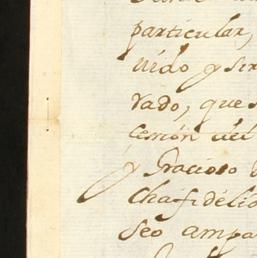 particular,
uido y ser
vado, que s
cesión del
y Gracioso
cha fidelid
seo ampa